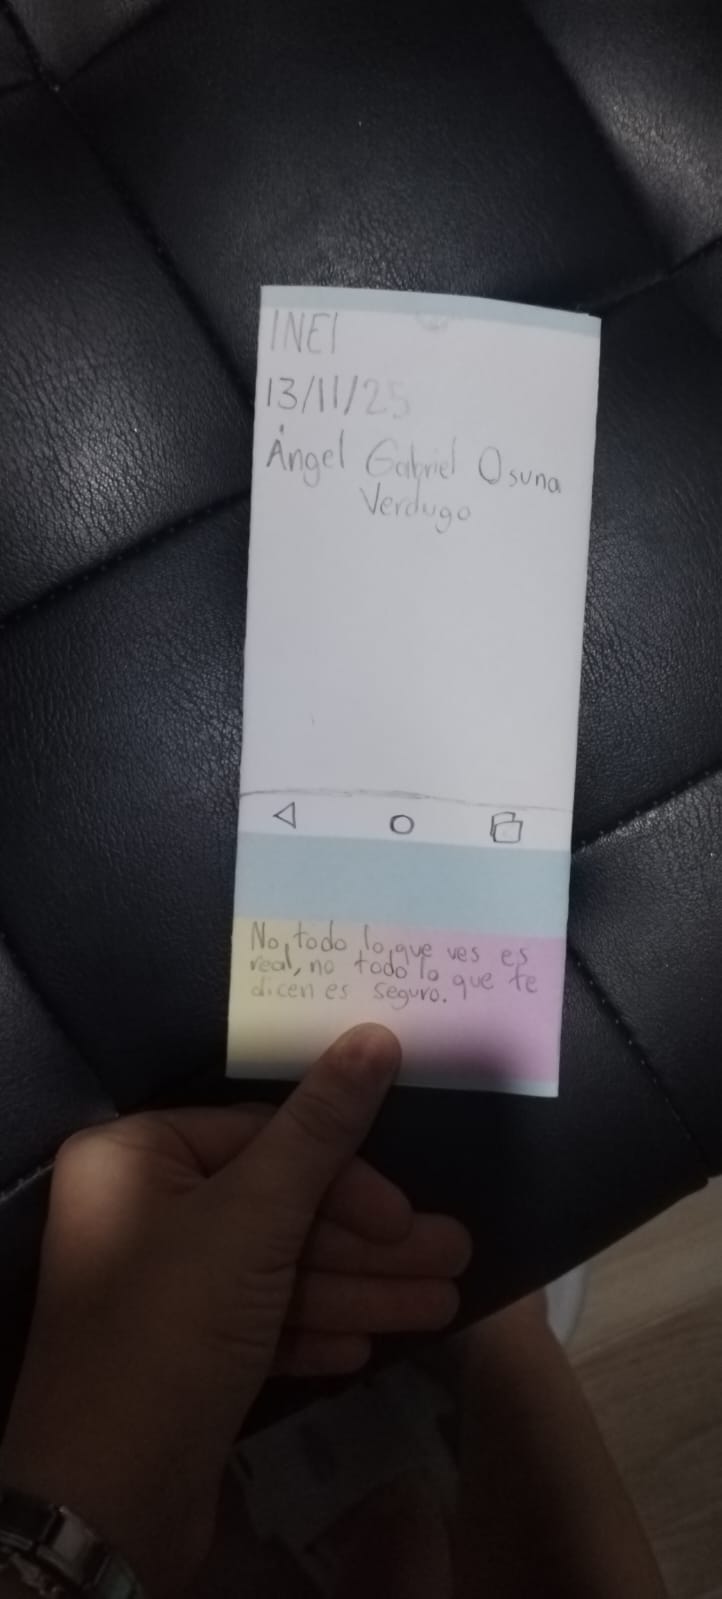 INEI
13/11/25
Ángel Gabriel Osuna
Verdugo
No, todo lo que ves es
real, no todo lo que te
dicen es seguro.